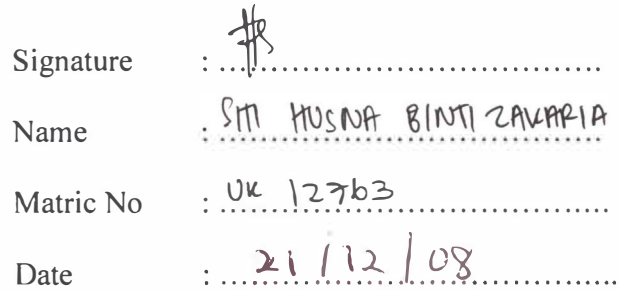 Signature :
Name : SITI HUSNA BINTI ZAKARIA
Matric No : UK 12763
Date : 21/12/08